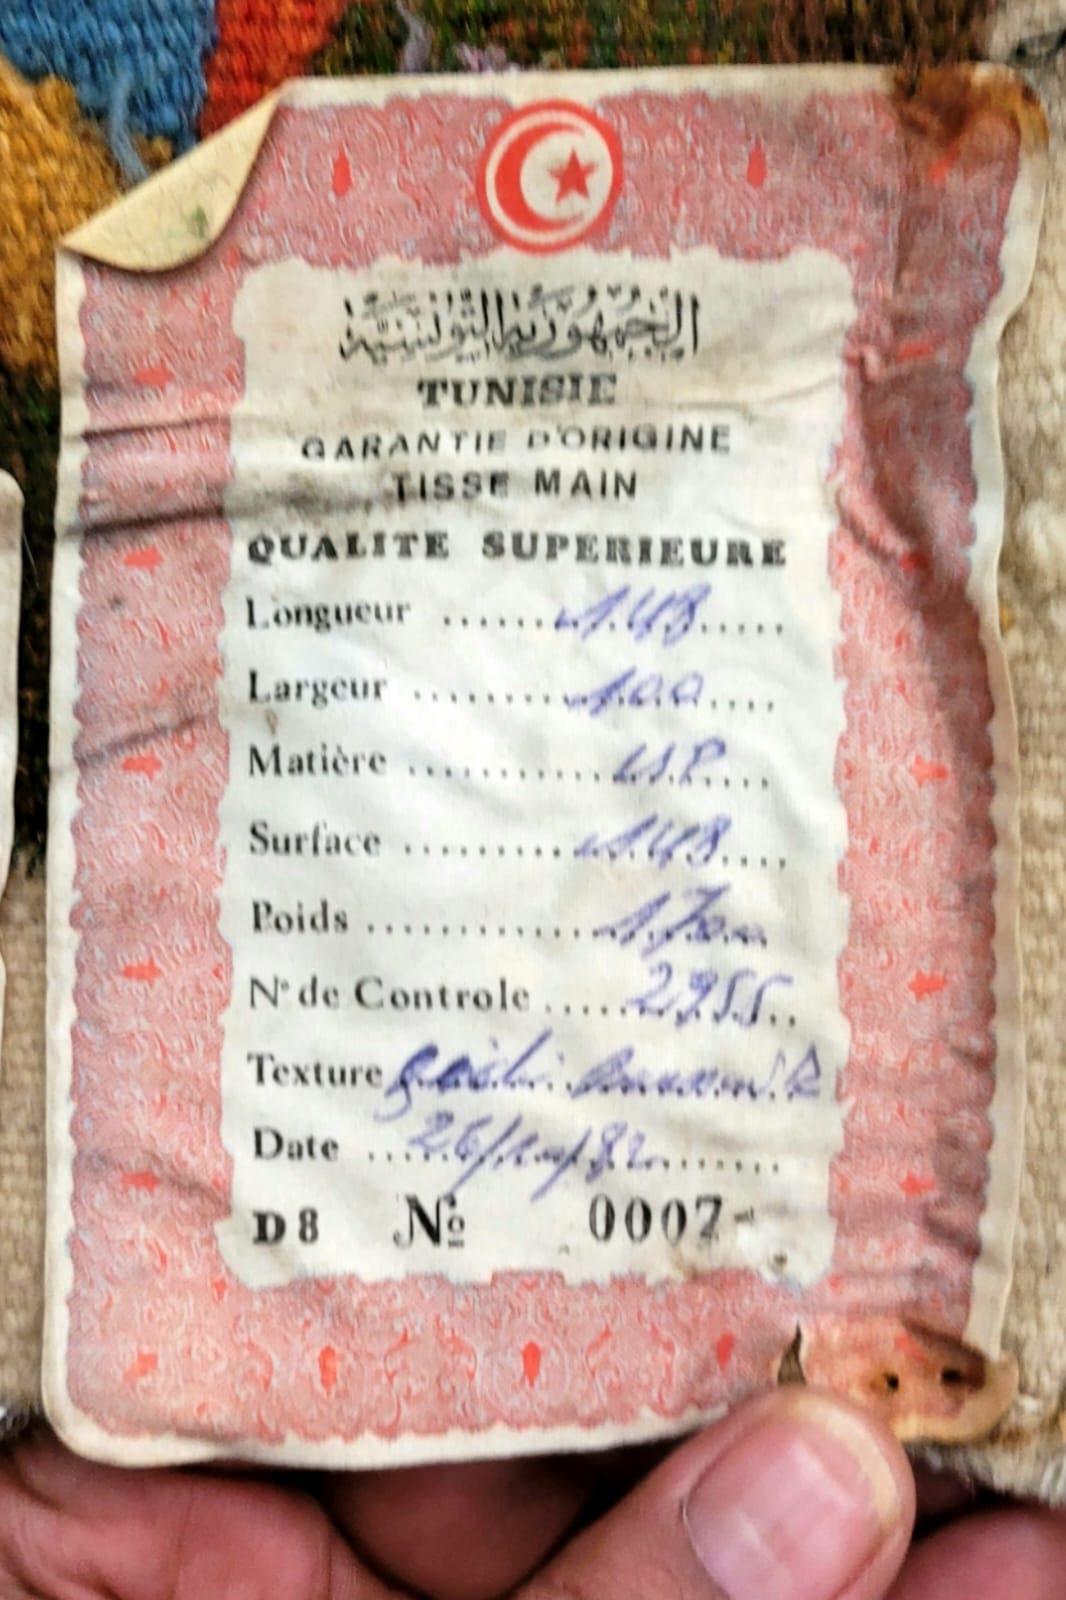 الجمهورية التونسية
TUNISIE
GARANTIE D'ORIGINE
TISSE MAIN
QUALITE SUPERIEURE
Longueur ........1.48.....
Largeur ..........100....
Matière ............
Surface .........1.48....
Poids .............1700
N° de Controle .....2955..
Texture
Date ....26/10/82........
D8 № 0007